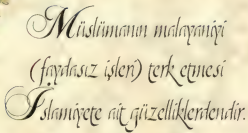 Müslümanın malayaniyi
(faydasız işleri) terk etmesi
İslamiyete ait güzelliklerdendir.